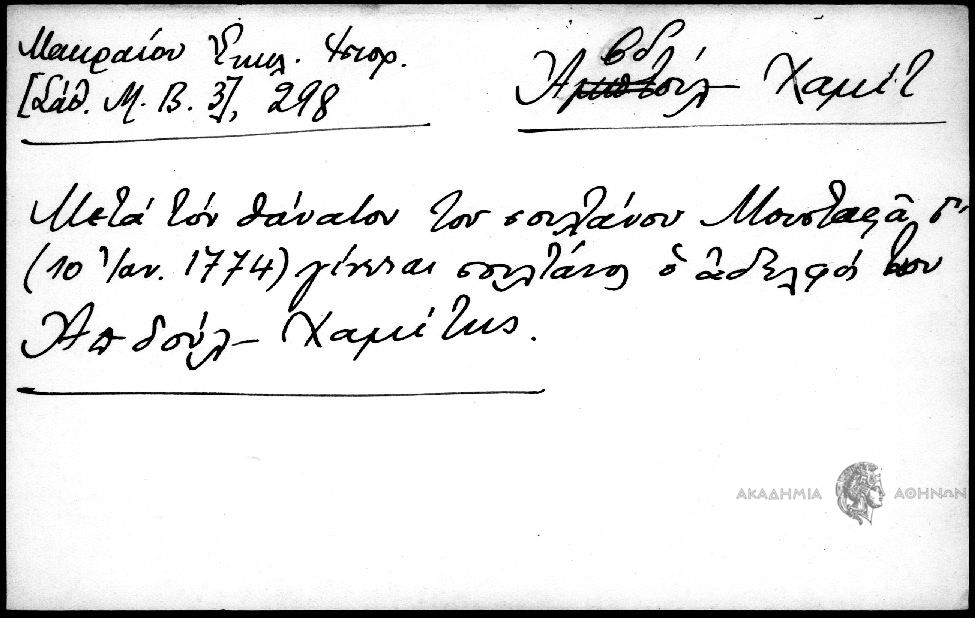 Μακραίου Ἐκκλ. Ἱστορ.
[Σάθ. Μ. Β. 3], 298
Ἀβδούλ Χαμίτ
Μετά τόν θάνατον του σουλτάνου Μουσταφᾶ δ'
(10 Ἰαν. 1774) γίνεται σουλτάνος ὁ ἀδελφός του
Ἀπδούλ-Χαμίτης.
ΑΚΑΔΗΜΙΑ ΑΘΗΝΩΝ